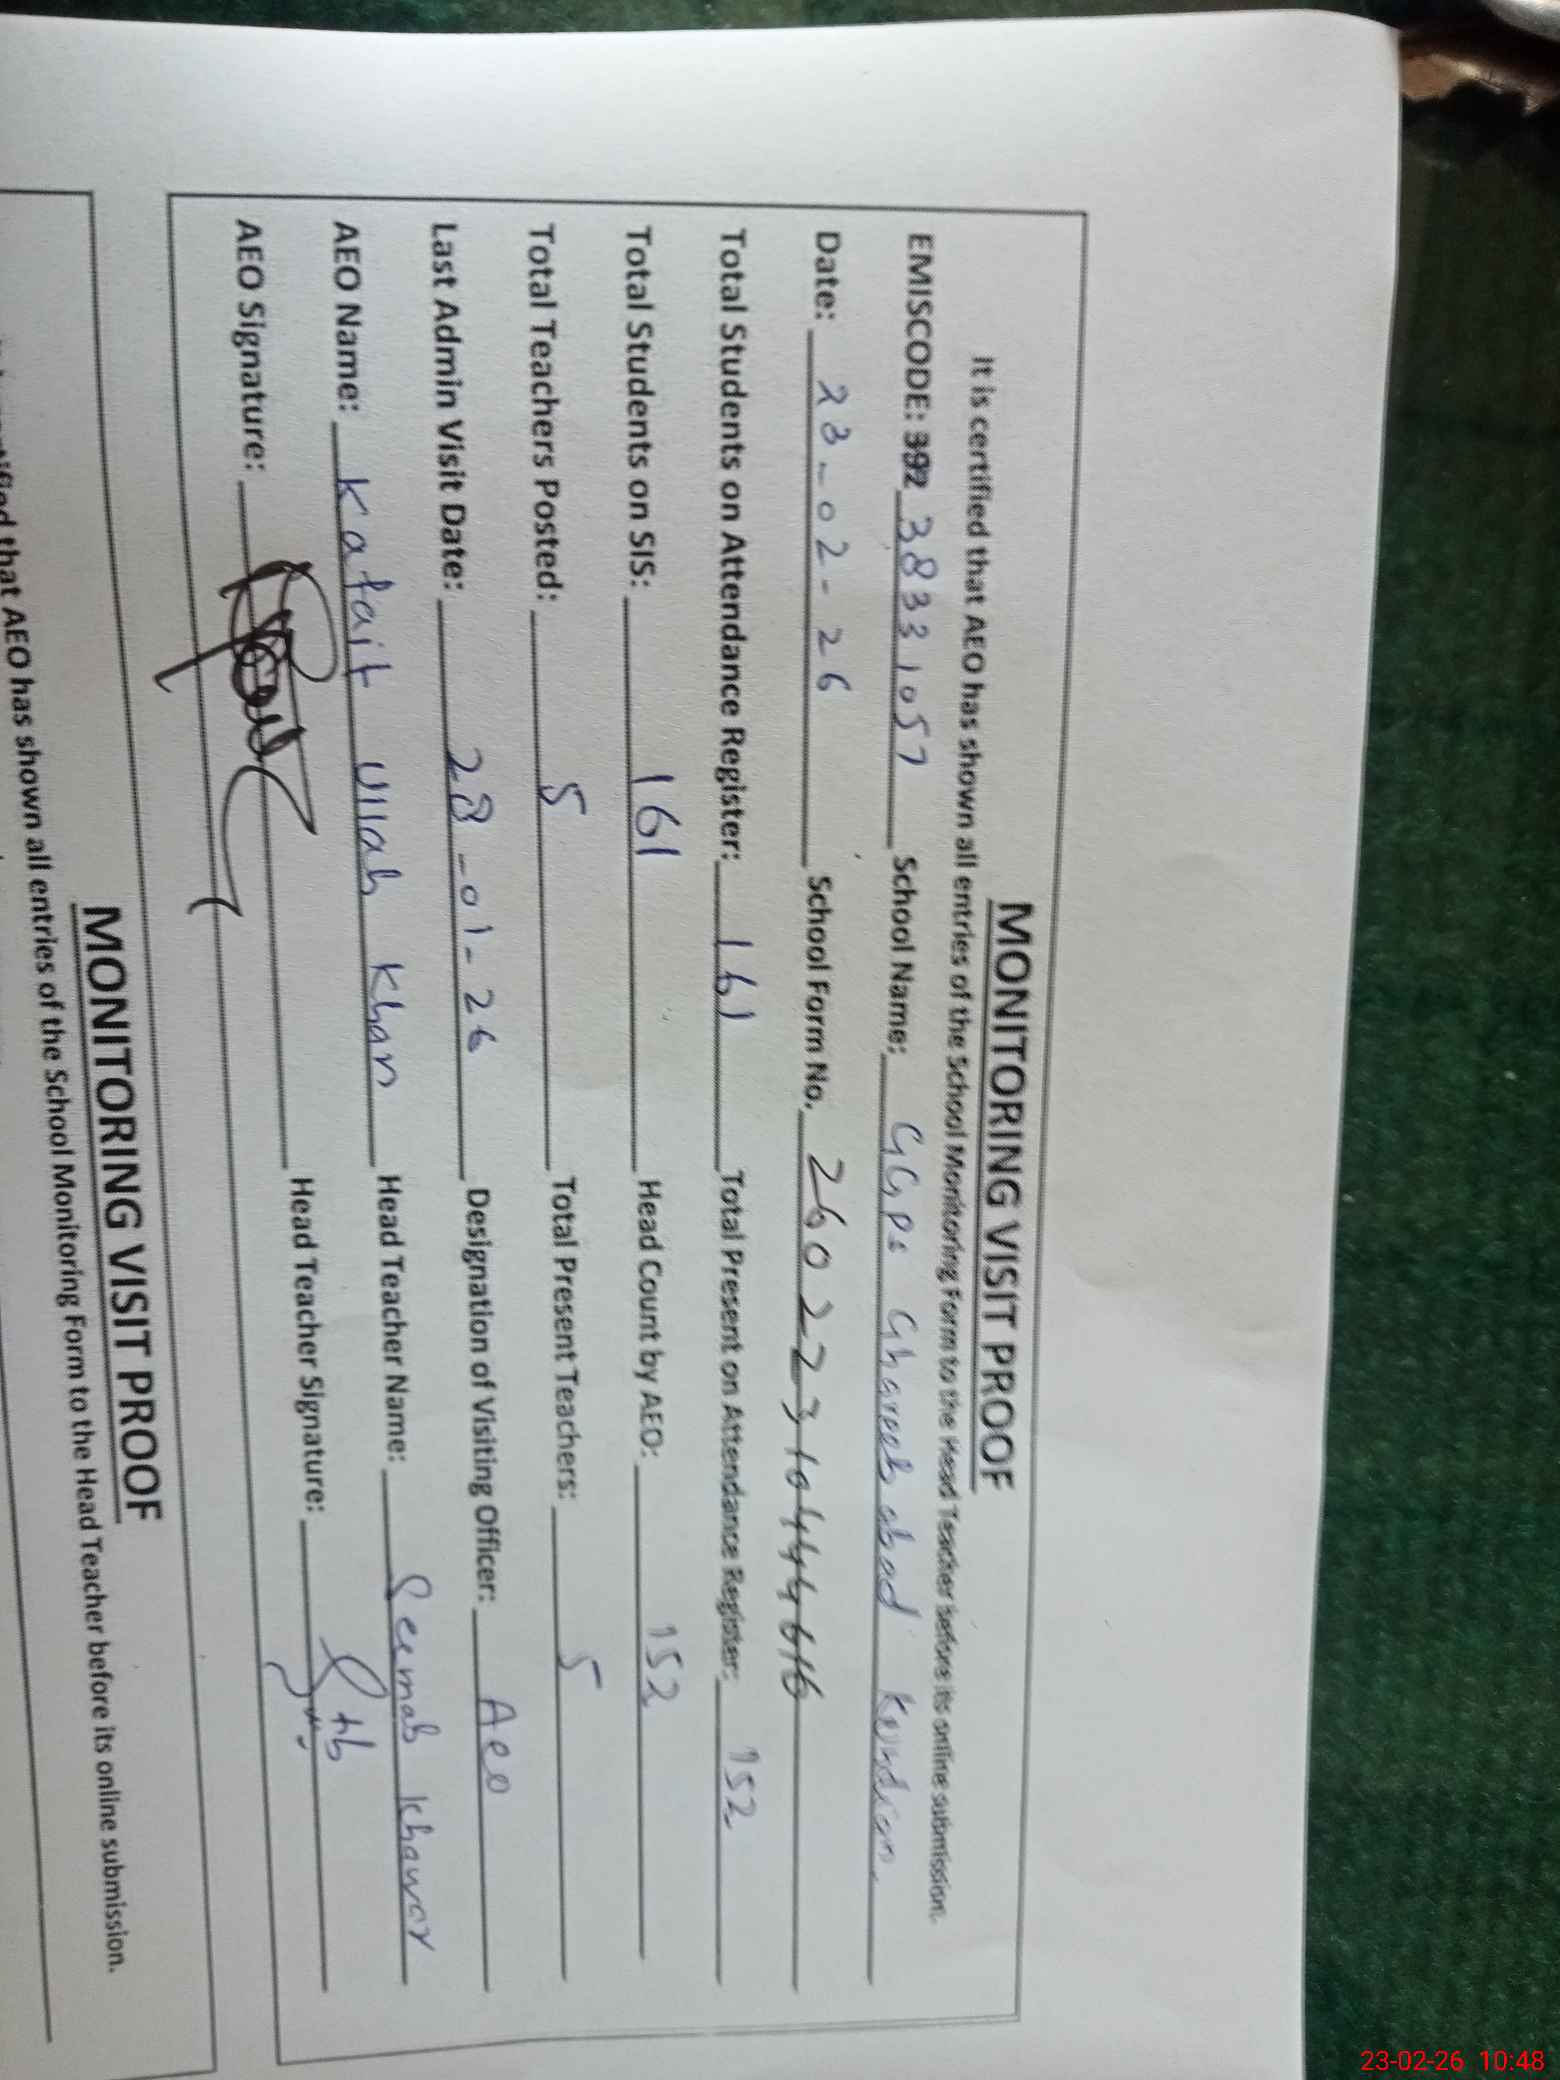 MONITORING VISIT PROOF
It is certified that AEO has shown all entries of the School Monitoring Form to the Head Teacher before its online submission.
EMISCODE: 392 38331057 School Name: GGPS Ghareeb abad Kundian
Date: 23-02-26 School Form No. 260223104444616
Total Students on Attendance Register: 161 Total Present on Attendance Register: 152
Total Students on SIS: 161 Head Count by AEO: 152
Total Teachers Posted: 5 Total Present Teachers: 5
Last Admin Visit Date: 28-01-26 Designation of Visiting Officer: Aeo
AEO Name: Kafait Ullah Khan Head Teacher Name: Seemab Khawar
AEO Signature: Head Teacher Signature:
MONITORING VISIT PROOF
that AEO has shown all entries of the School Monitoring Form to the Head Teacher before its online submission.
23-02-26 10:48